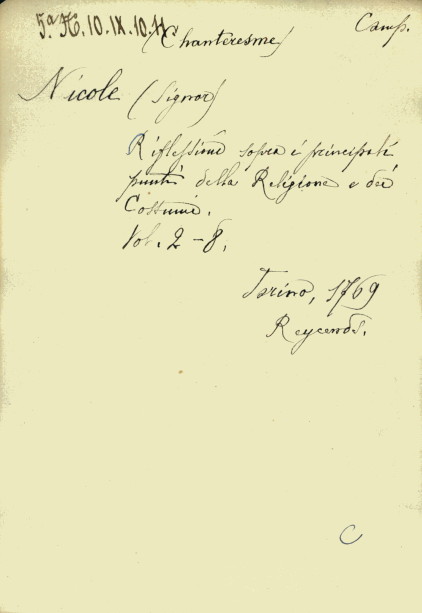 5.ª H. 10. IX. 10. 11
(Chanteresme) Camp.
Nicole (Signor)
Riflessioni sopra i principali
punti della Religione e dei
Costumi.
Vol. 2 - 8.
Torino, 1769
Reycends.
C